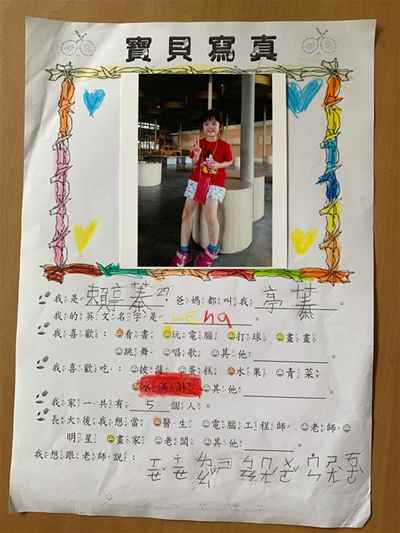 寶貝寫真
我是賴亭蓁27,爸媽都叫我:亭蓁。
我的英文名字是:Lena。
我喜歡:看書 玩電腦 打球 畫畫
跳舞 唱歌 其他。
我喜歡吃:披薩 蛋糕 水果 青菜
冰淇淋 其他。
我家一共有5個人。
長大後我想當:醫生 電腦工程師 老師
明星 畫家 老闆 其他。
我想跟老師說: